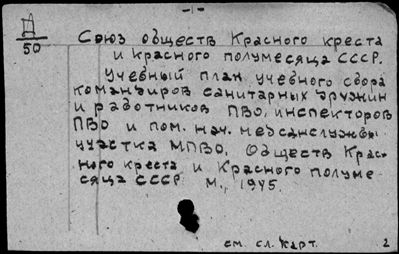 -1-
Д
50
Союз обществ Красного креста
и Красного полумесяца СССР.
Учебный план учебного сбора
командиров санитарных дружин
и работников ПВО, инспекторов
ПВО и пом. нач. медсанслужбы
участка МПВО. Обществ Крас-
ного креста и Красного полуме
сяца СССР М., 1945.
см. сл. карт. 2